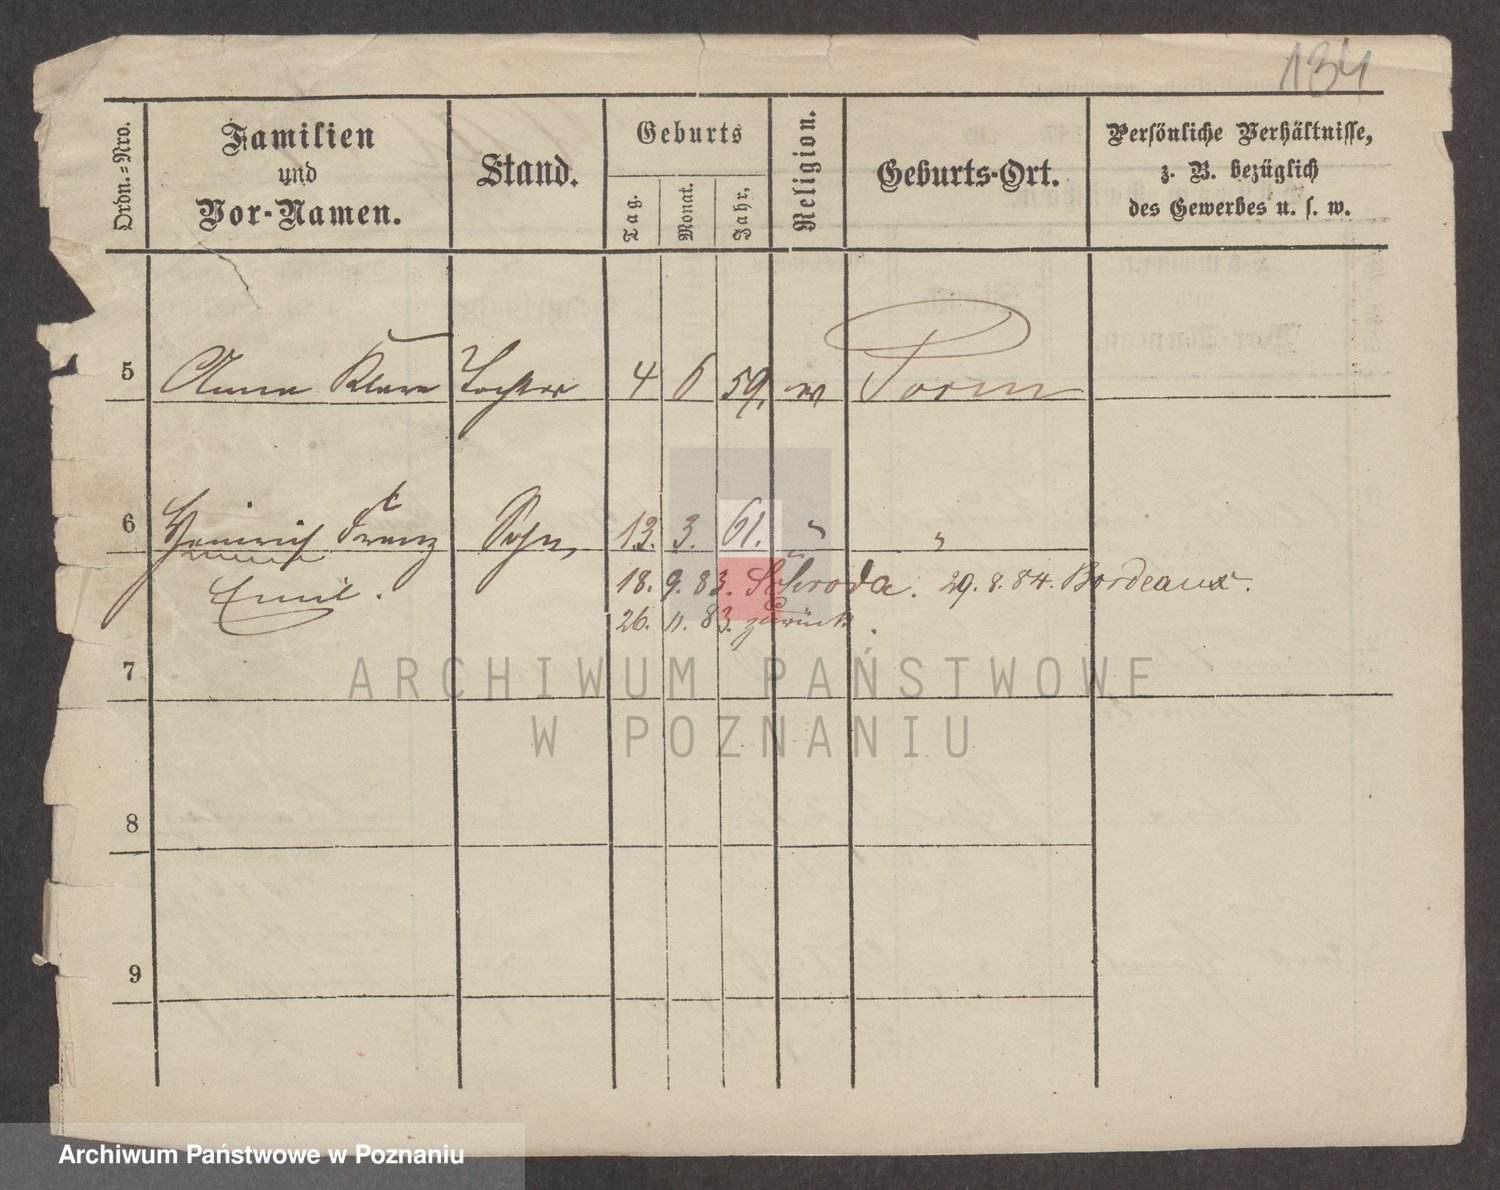 134
Ordn.-Nro.
Familien
und
Vor-Namen.
Stand.
Geburts
Tag.
Monat.
Jahr.
Religion.
Geburts-Ort.
Persönliche Verhältnisse,
z. B. bezüglich
des Gewerbes u. s. w.
5 Anna Klara Tochter 4 6 59.
6 Heinrich Franz Sohn 13. 3. 61. " "
Emil.
18. 9. 83. Schroda. 29. 8. 84. Bordeaux.
26. 11. 83. zurück.
7
8
9
ARCHIWUM PAŃSTWOWE
W POZNANIU
Archiwum Państwowe w Poznaniu